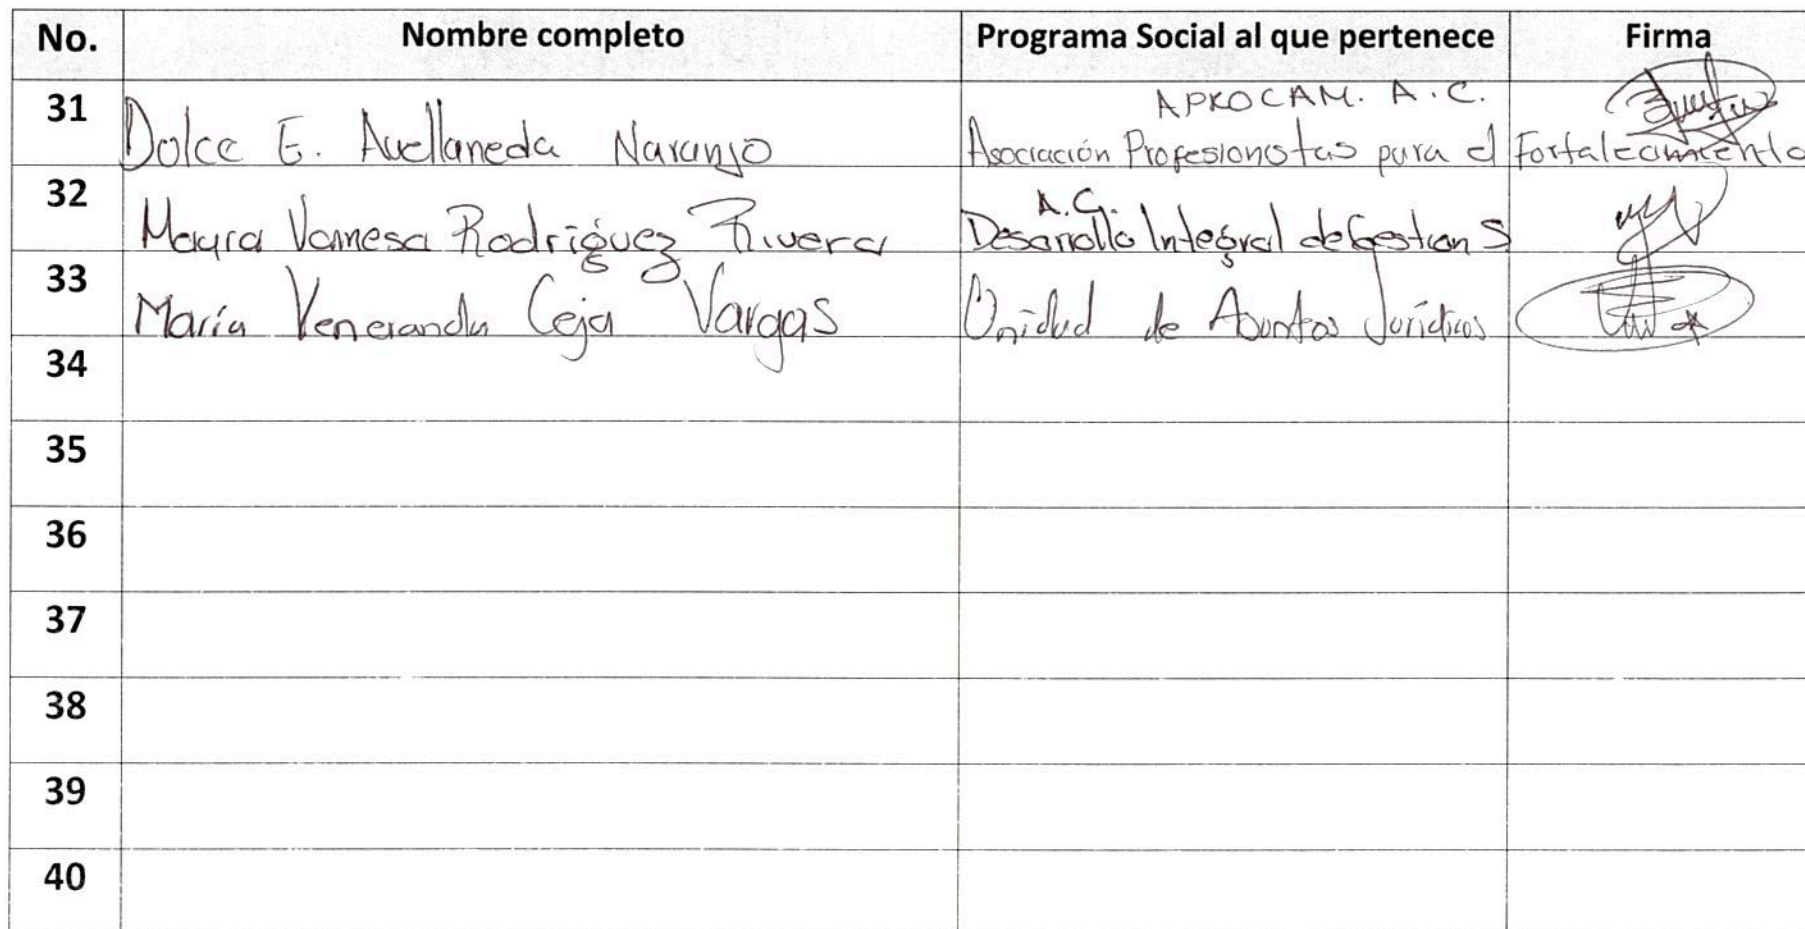 No. Nombre completo Programa Social al que pertenece Firma
31 Dolce E. Avellaneda Naranjo APROCAM. A.C.
Asociación Profesionistas para el Fortalecimiento
32 Mayra Vannesa Rodríguez Rivera A.C.
Desarrollo Integral de Gestion S
33 María Veneranda Ceja Vargas Unidad de Asuntos Jurídicos
34
35
36
37
38
39
40